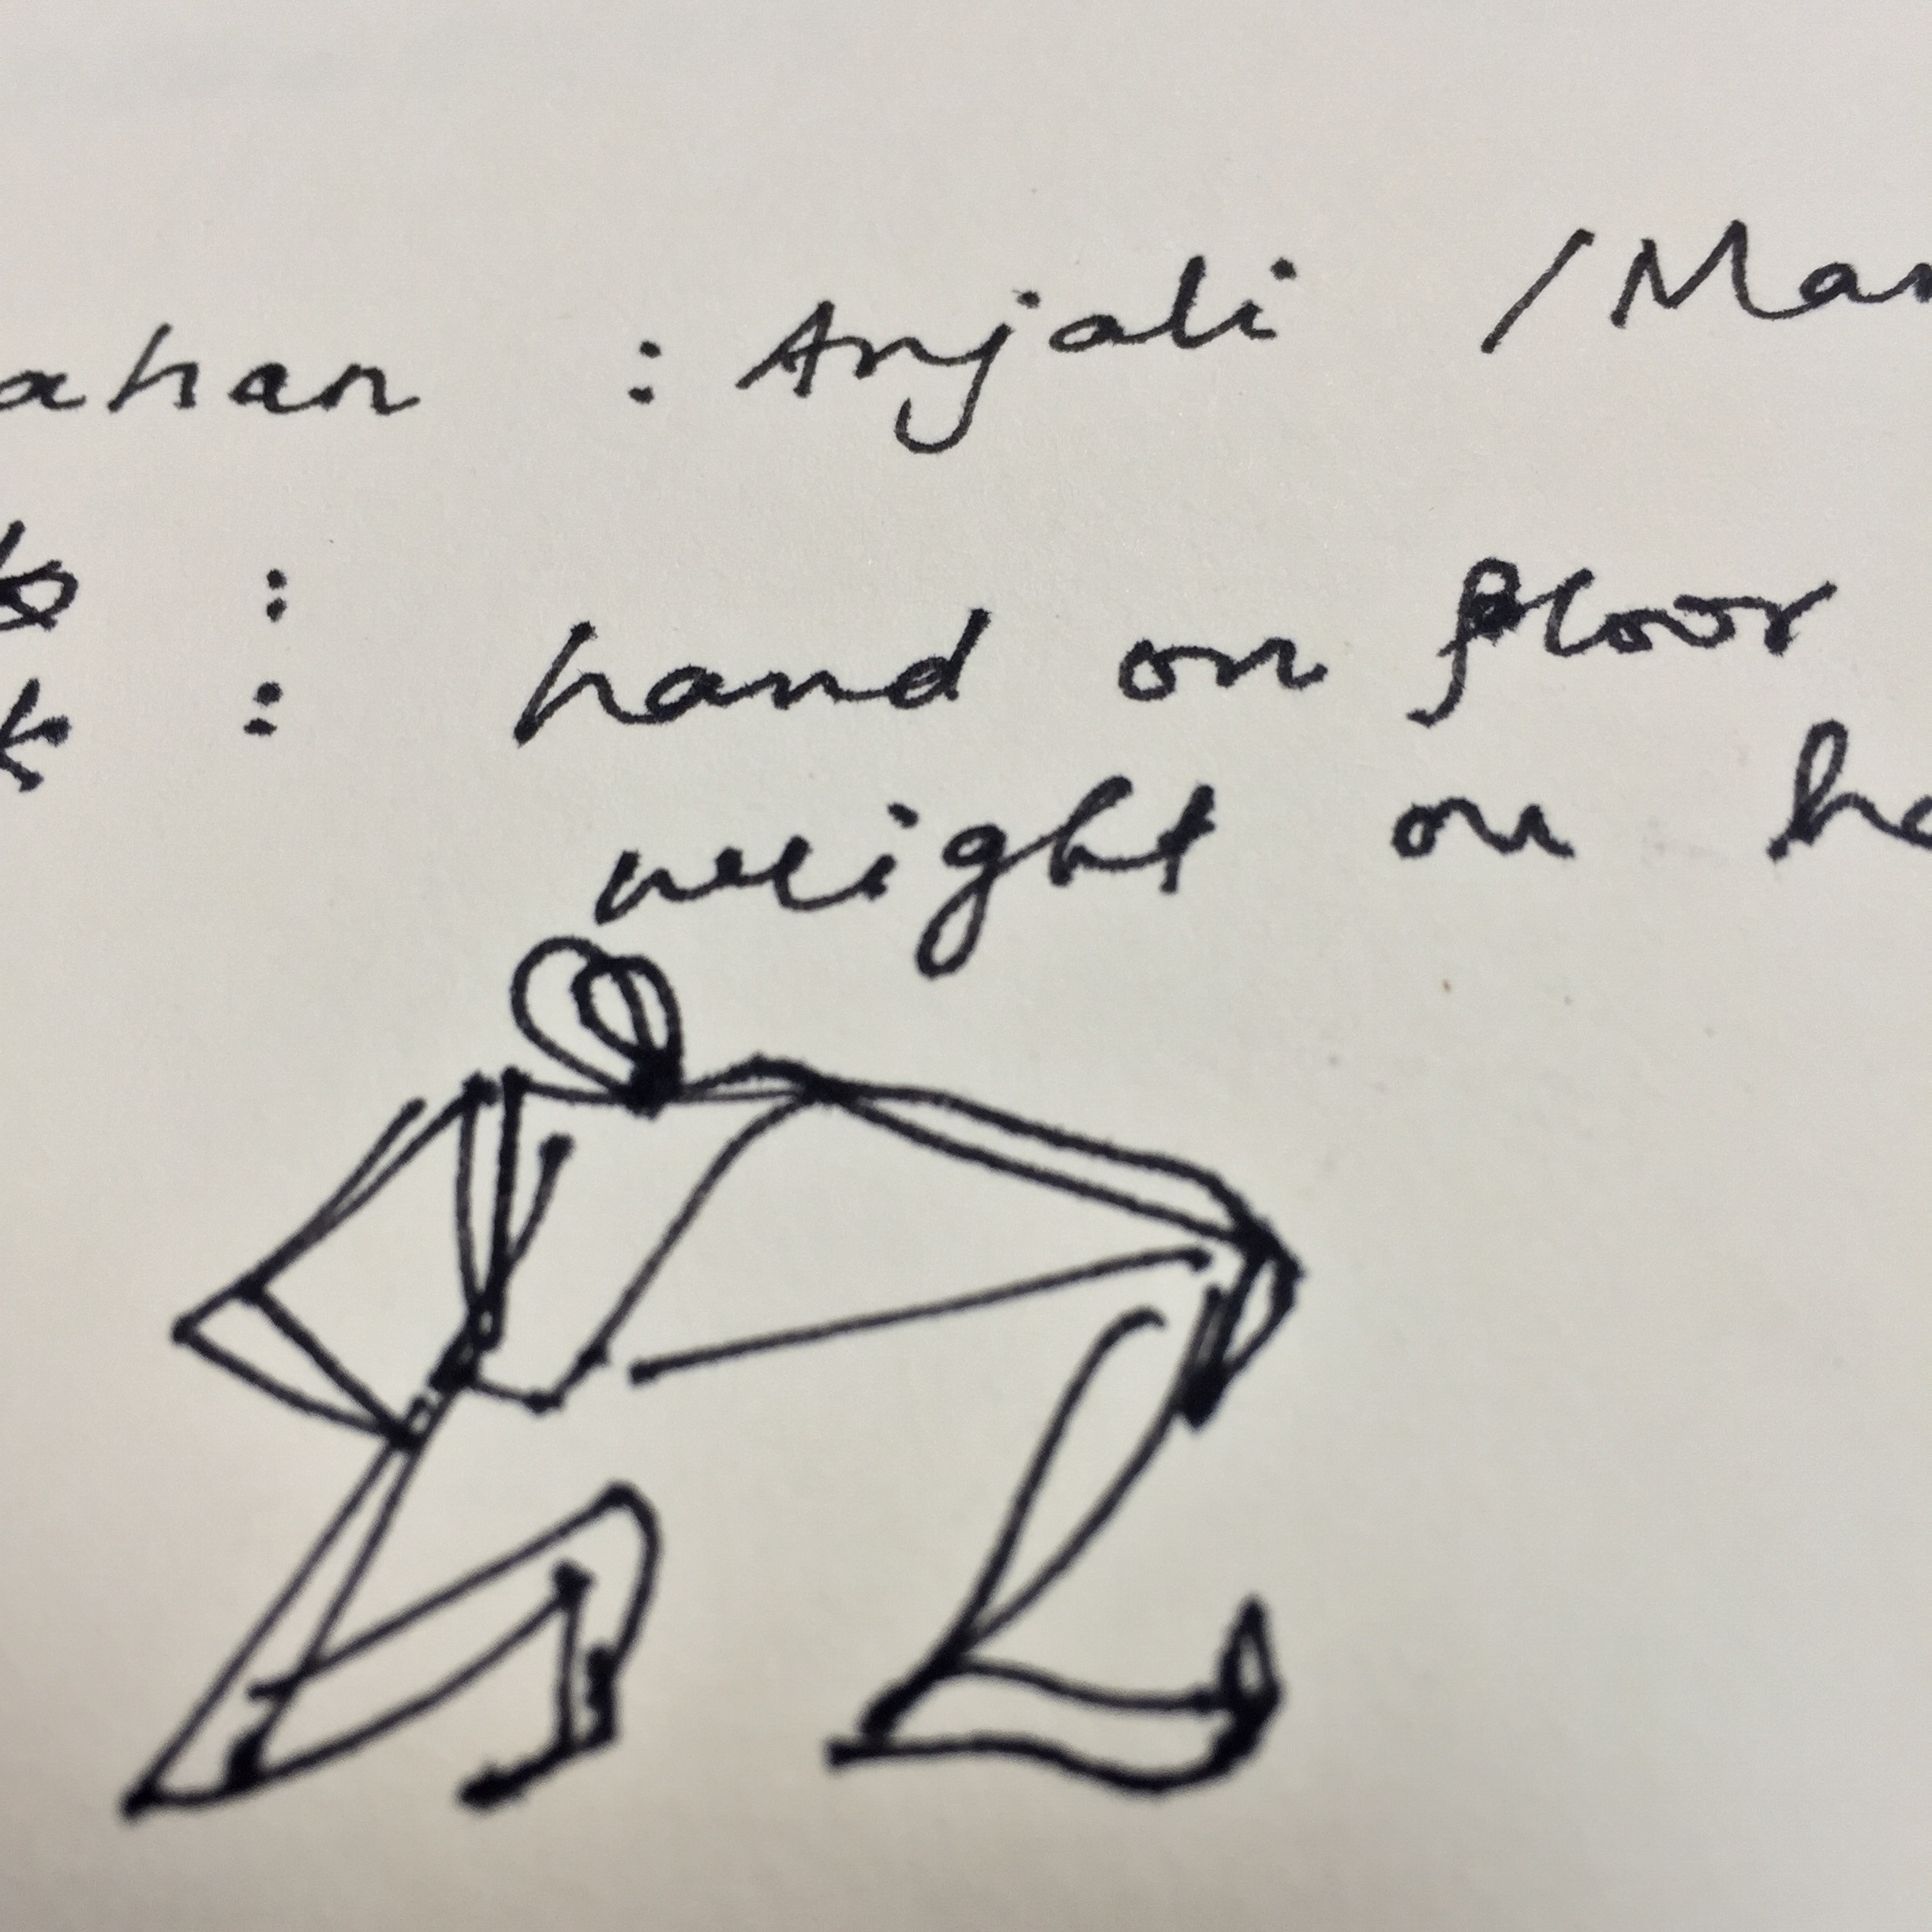 ahan : Anjali / Man
:
k : hand on floor
weight on ha